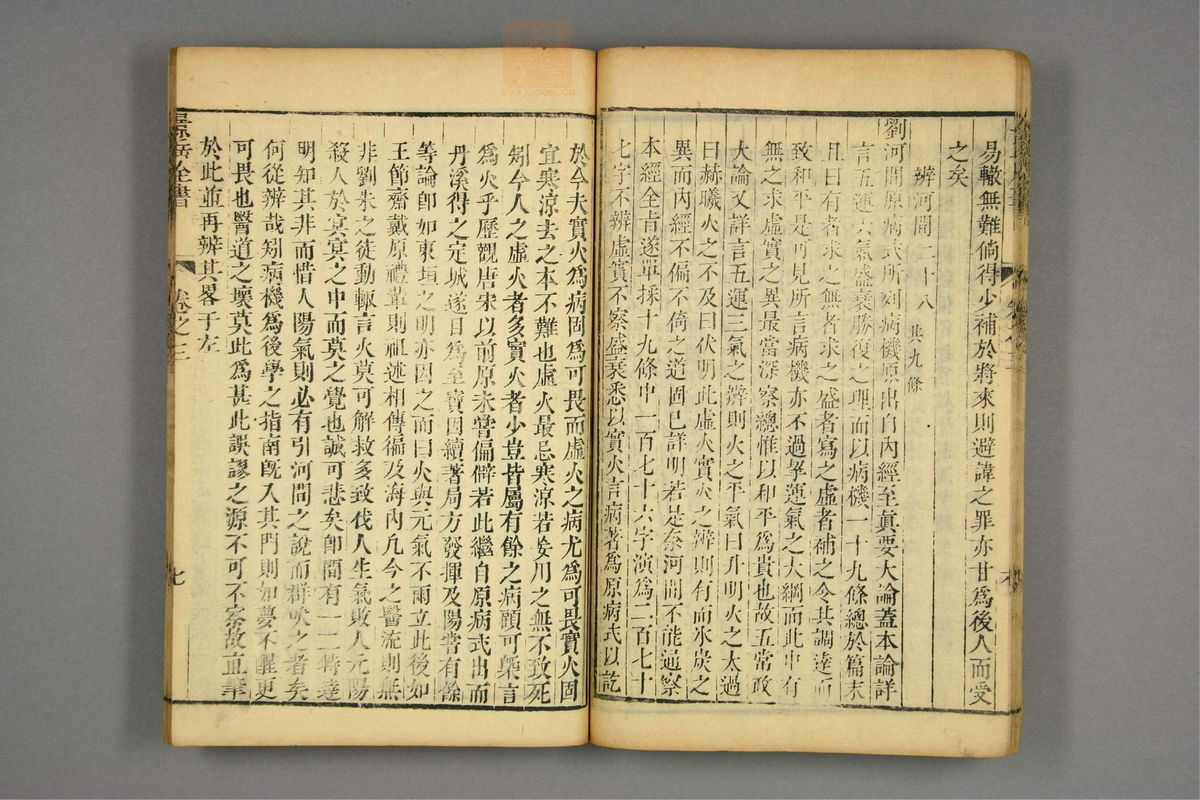 易轍無難倘得少補於將來則避諱之罪亦甘為後人而受
之矣
辨河間二十八 共九條
劉河間原病式所列病機原出自內經至真要大論蓋本論詳
言五運六氣盛衰勝復之理而以病機一十九條總於篇末
且曰有者求之無者求之盛者瀉之虛者補之令其調達而
致和平是可見所言病機亦不過挈運氣之大綱而此中有
無之求虛實之異最當深察總惟以和平為貴也故五常政
大論又詳言五運三氣之辨則火之平氣曰升明火之太過
曰赫曦火之不及曰伏明此虛火實火之辨則有而氷炭之
異而內經不偏不倚之道固已詳明若是奈河間不能通察
本經全旨遂單採十九條中一百七十六字演為二百七十
七字不辨虛實不察盛衰悉以實火言病著為原病式以訖
於今夫實火為病固為可畏而虛火之病尤為可畏實火固
宜寒涼去之本不難也虛火最忌寒涼若妄用之無不致死
矧今人之虛火者多實火者少豈皆屬有餘之病顧可槩言
為火乎歷觀唐宋以前原未嘗偏僻若此繼自原病式出而
丹溪得之定城遂目為至寶因續著局方發揮及陽嘗有餘
等論卽如東垣之明亦因之而曰火與元氣不兩立此後如
王節齋戴原禮輩則祖述相傳徧及海內凡今之醫流則無
非劉朱之徒動輒言火莫可解救多致伐人生氣敗人元陽
殺人於冥冥之中而莫之覺也誠可悲矣卽間有一二特達
明知其非而惜人陽氣則必有引河間之說而群吠之者矣
何從辨哉矧病機為後學之指南旣入其門則如夢不醒更
可畏也醫道之壞莫此為甚此誤謬之源不可不察故直筆
於此並再辨其畧于左
景岳全書
卷之三
七